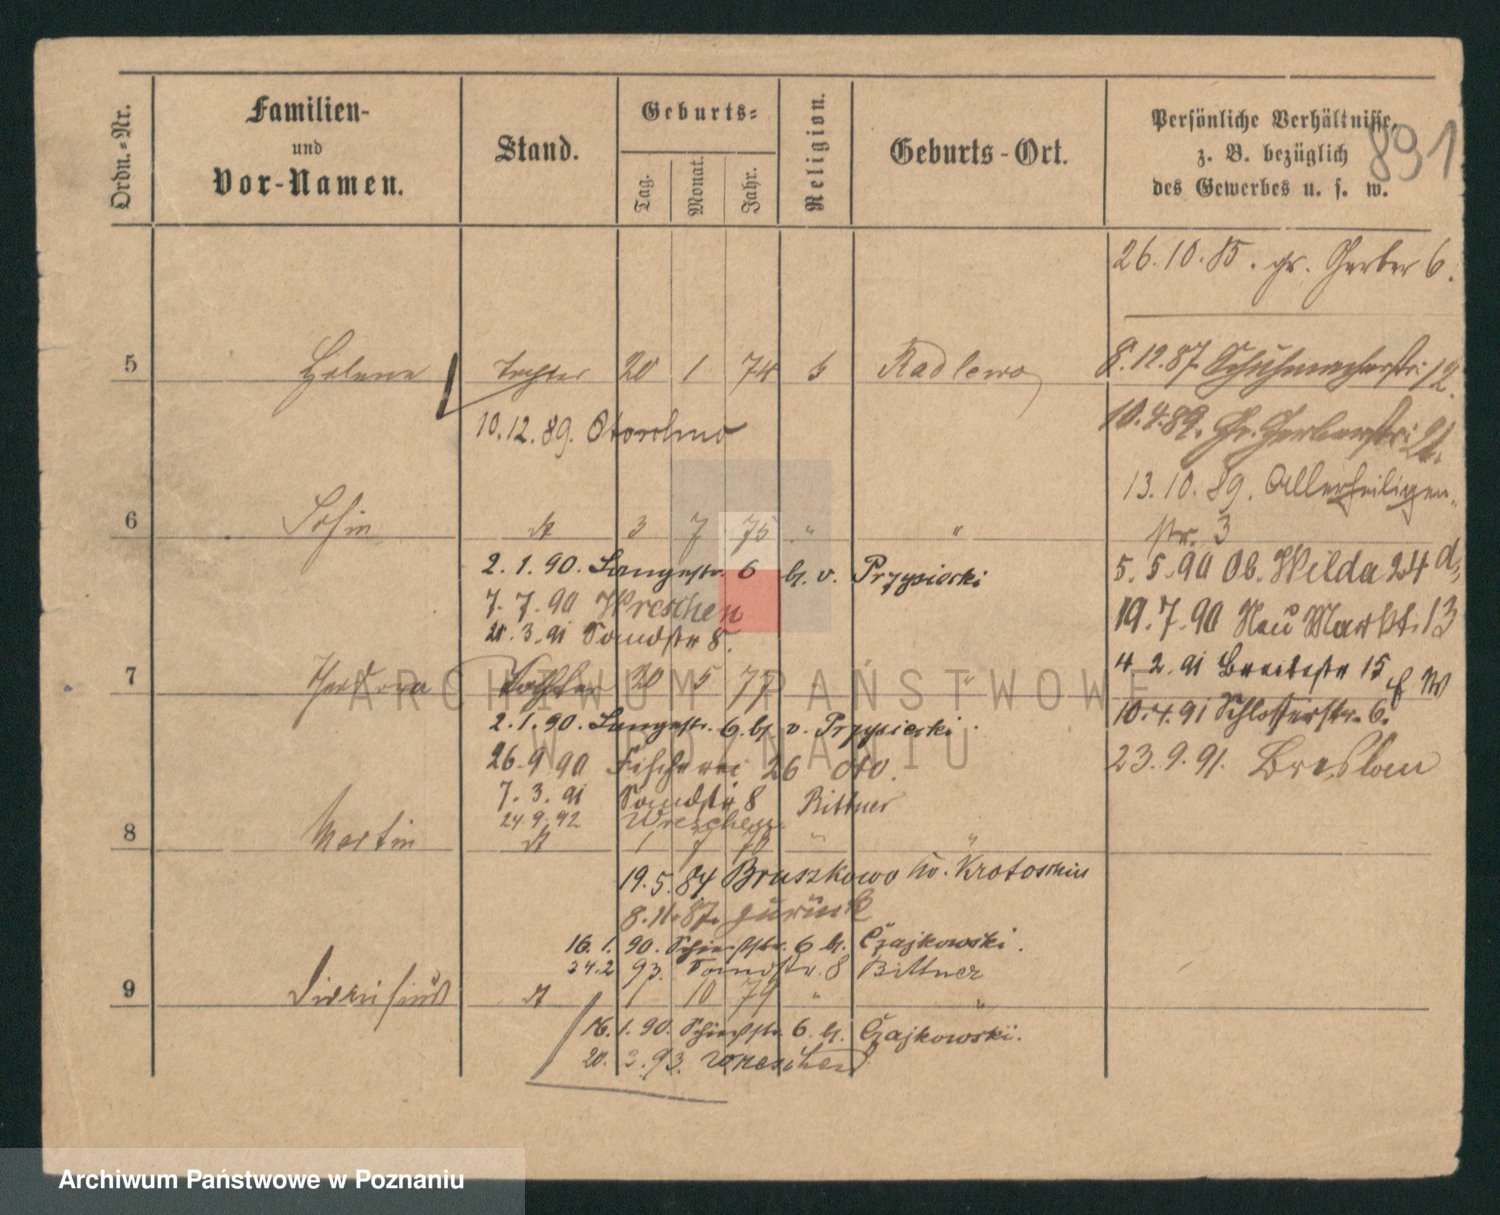 Ordn.-Nr.
Familien-
und
Vor-Namen.
Stand.
Geburts-
Tag.
Monat.
Jahr.
Religion.
Geburts-Ort.
Persönliche Verhältnisse,
z. B. bezüglich
des Gewerbes u. s. w.
891
26. 10. 85. gr. Gerber 6.
5 Helene Tochter 20 1 74 Radlewo
8. 12. 87. Schuhmacherstr. 12.
10. 12. 89.
10. 4. 89. Gr. Gerberstr. 21.
13. 10. 89. Allerheiligen-
str. 3
6 Sofia 3 7 75 " "
2. 1. 90. Langestr. 6 b. v. Przysiecki
5. 5. 90 Ob. Wilda 24
7. 7. 90 Wreschen
19. 7. 90 Neu Markt. 13
21. 3. 91 Sandstr 8.
4 2. 91 Breitestr 15
7 Theodora Tochter 20 5 77 "
2. 1. 90. Langestr. 6. b. v. Przysiecki.
10. 4. 91 Schlosserstr. 6.
26. 9. 90 Fischerei 26
23. 9. 91. Breslau
7. 3. 91 Sandstr 8 Bittner
24. 9. 92 Wreschen.
8 Martin 1 7 " "
19. 5. 84 Bruszkowo Kr. Krotoschin
8. 11. 87. zurück
16. 1. 90. Schiesstr. 6 b. Czajkowski.
24. 2 93. Sandstr. 8 Bittner
9 1 10 79 " "
16. 1. 90. Schiesstr. 6. b. Czajkowski.
20. 3. 93. Wreschen
ARCHIWUM PAŃSTWOWE
W POZNANIU
Archiwum Państwowe w Poznaniu